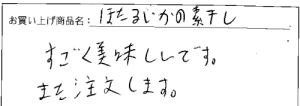 お買い上げ商品名: ほたるいかの素干し
すごく美味しいです。
また注文します。